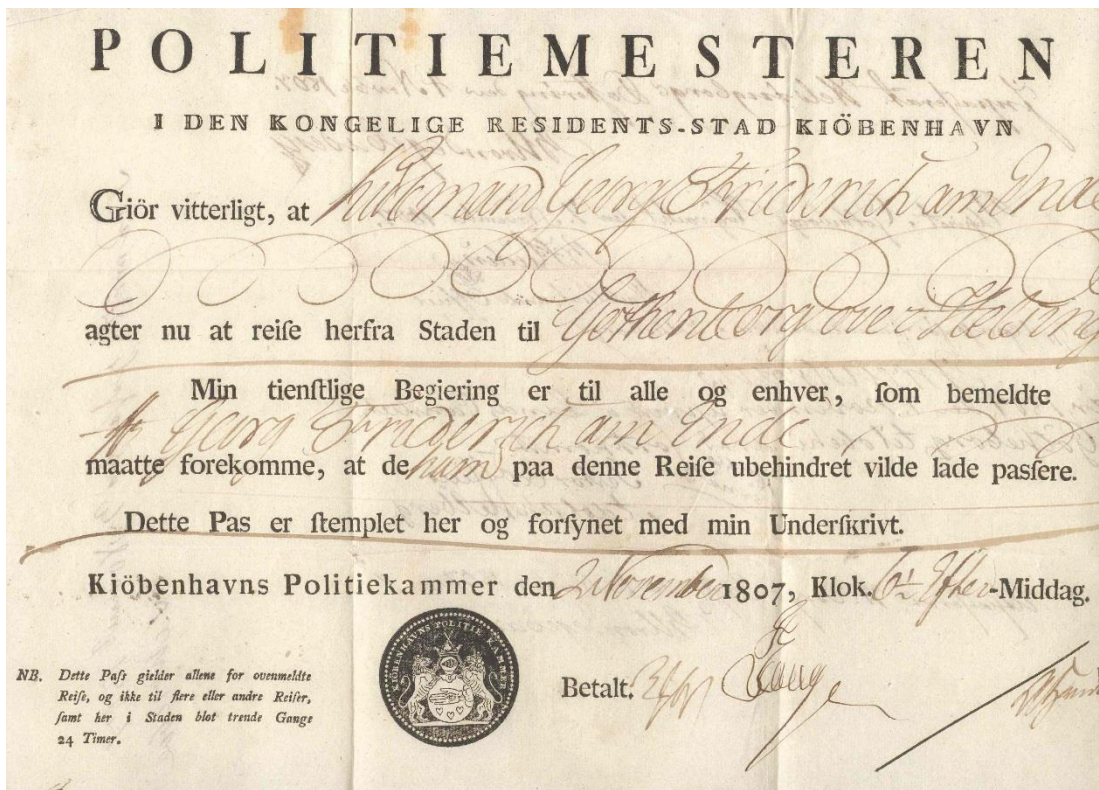 POLITIEMESTEREN
I DEN KONGELIGE RESIDENTS-STAD KIÖBENHAVN
Giör vitterligt, at Georg Friderich am Ende
agter nu at reiſe herfra Staden til Gothenborg over Helsing
Min tienſtlige Begiering er til alle og enhver, ſom bemeldte
Georg Friderich am Ende
maatte forekomme, at de ham paa denne Reiſe ubehindret vilde lade paſſere.
Dette Pas er ſtemplet her og forſynet med min Underſkrivt.
Kiöbenhavns Politiekammer den 2 November 1807, Klok. 6 Efter-Middag.
KIÖBENHAVNS POLITIE KAMMER
Betalt.
NB. Dette Paſs gielder allene for ovenmeldte
Reiſe, og ikke til flere eller andre Reiſer,
ſamt her i Staden blot trende Gange
24 Timer.